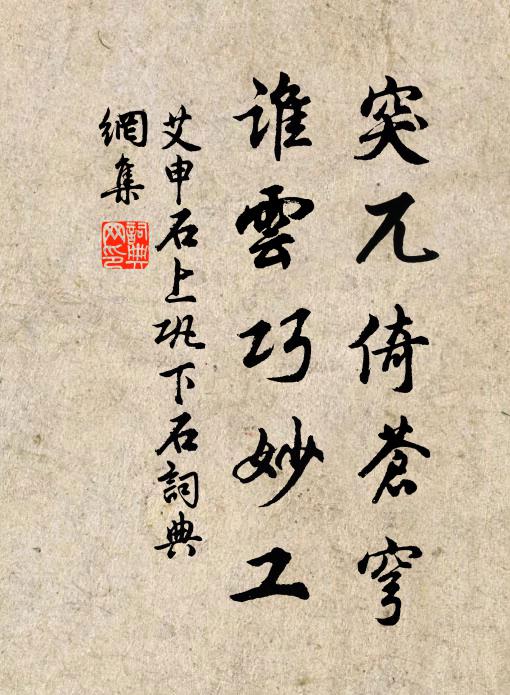 突兀倚蒼穹
誰雲巧妙工
艾申石上巩下石詞典
網集
詞典
网印